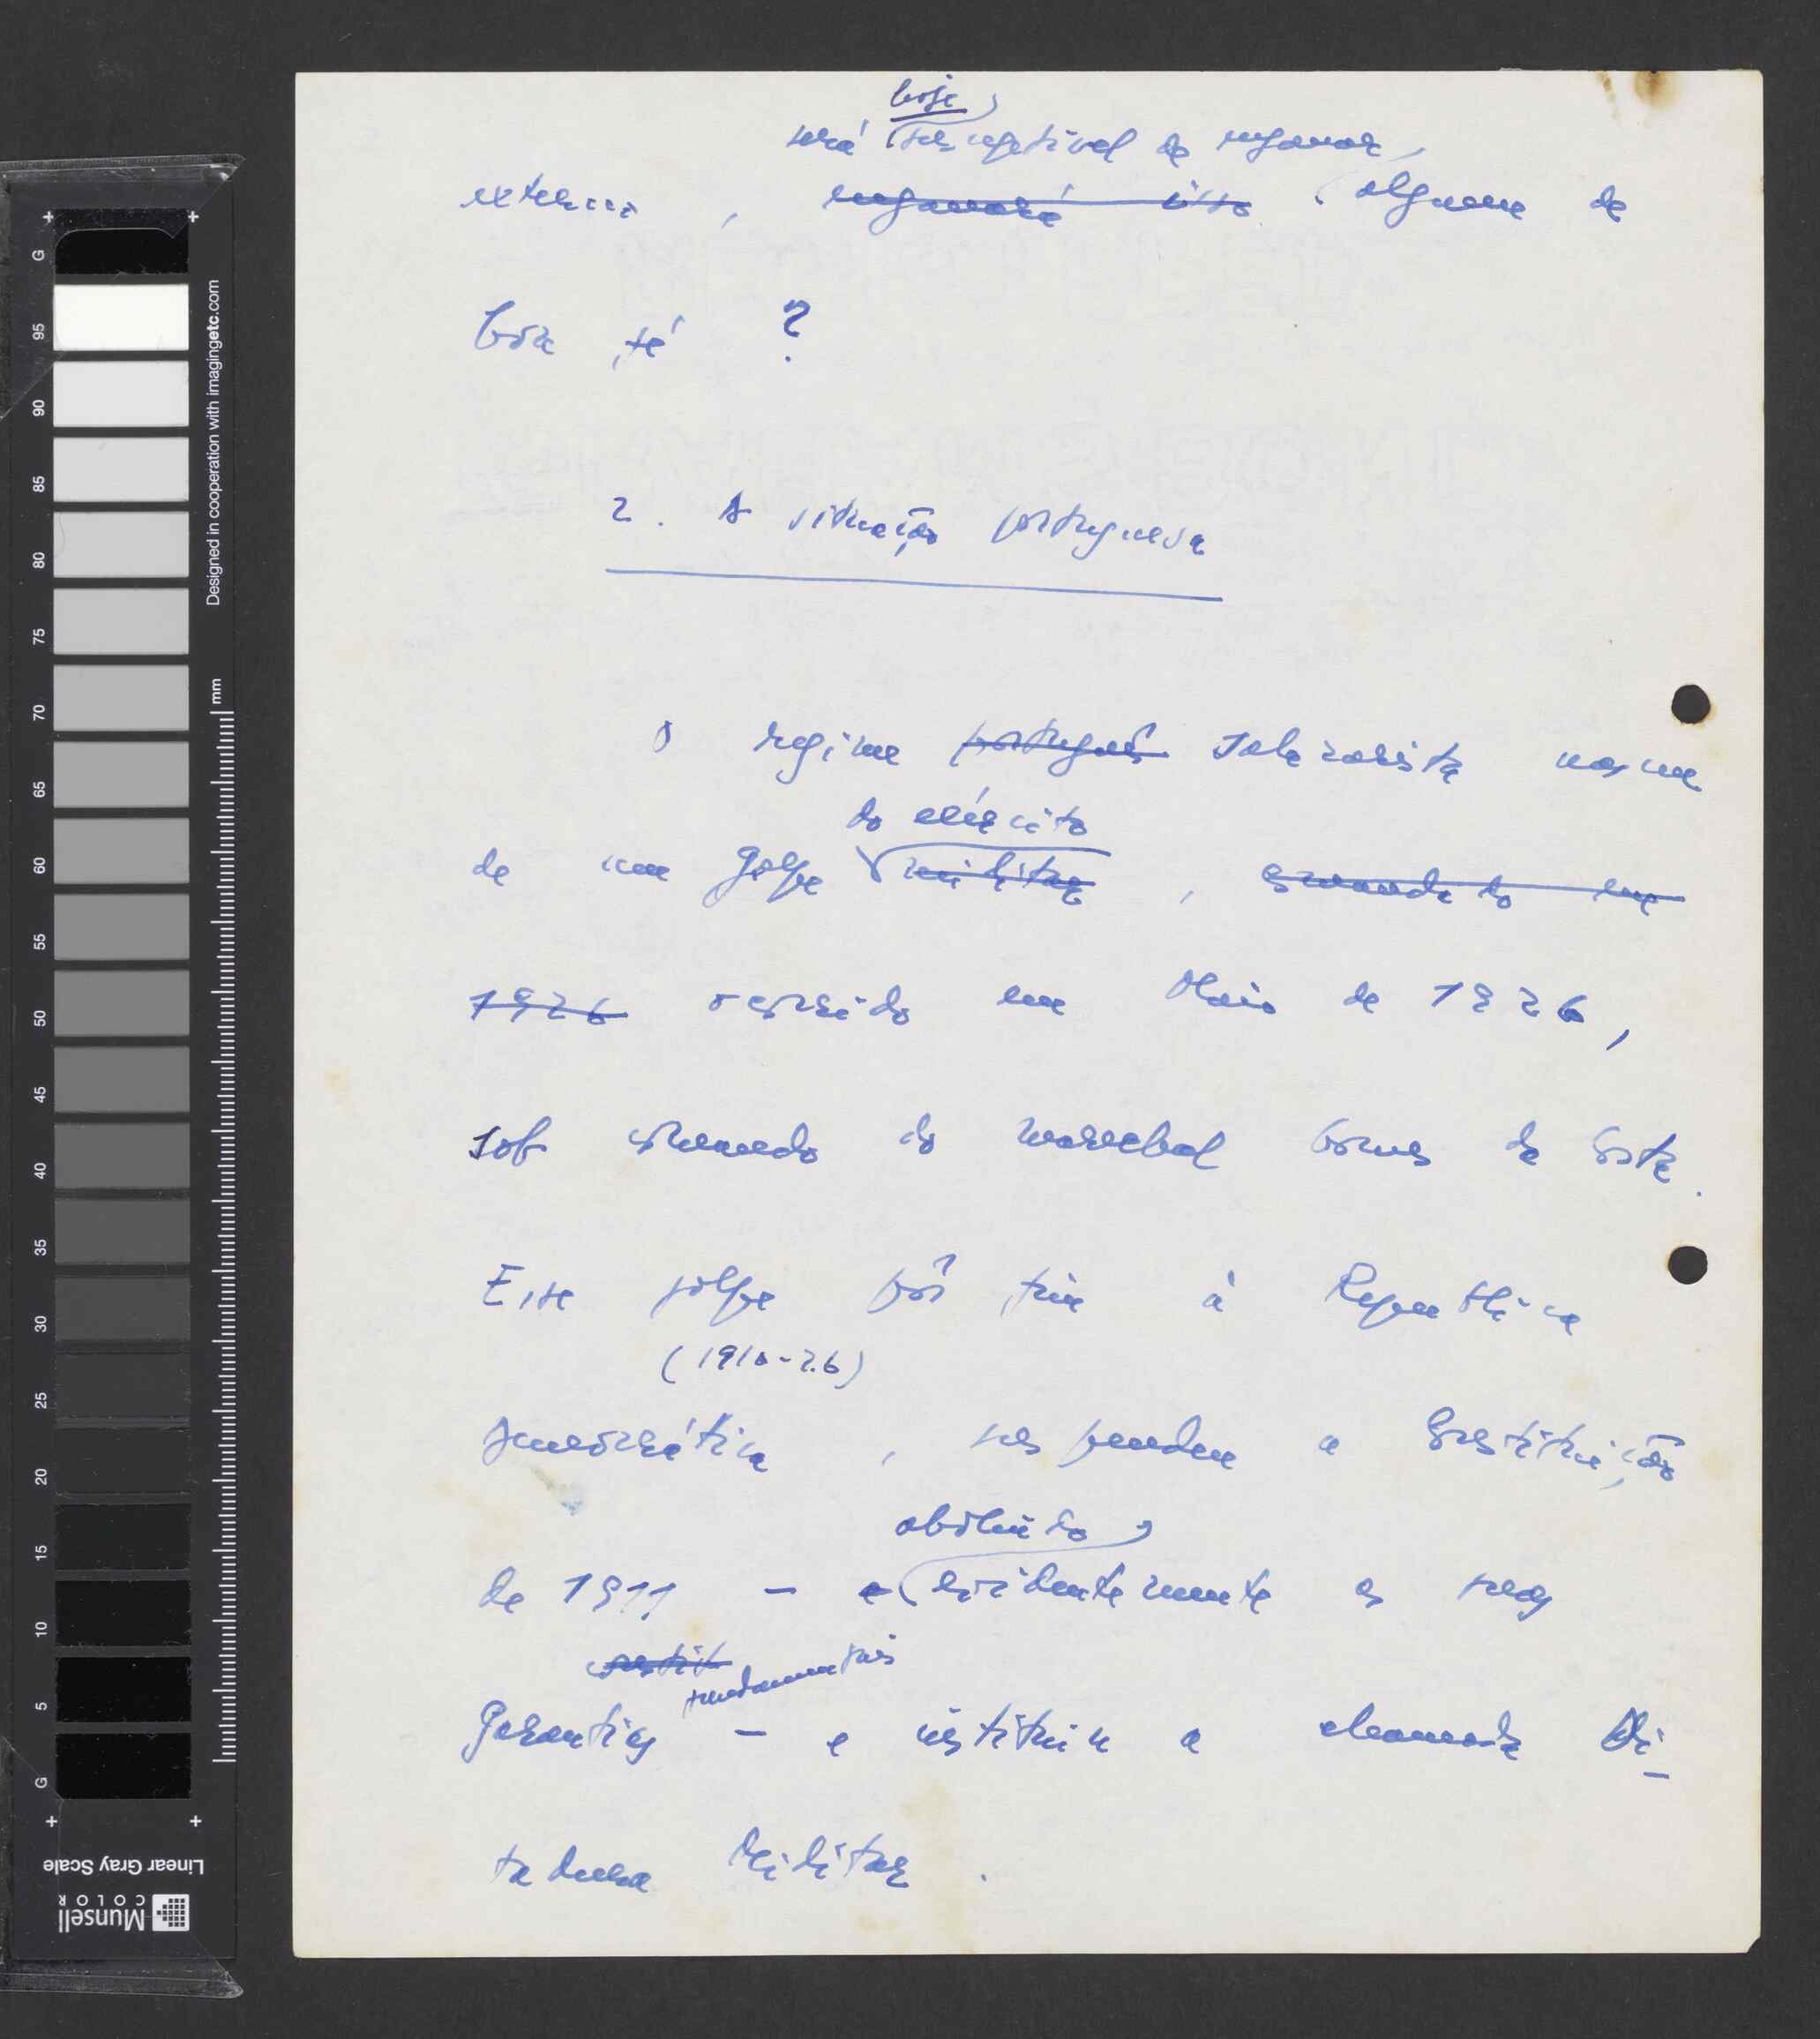 hoje
será susceptível de enganar
exterior, enganará isso alguem de
boa fé ?
2. A situação portuguesa
O regime português salazarista nasceu
do exército
de um golpe militar, comandado em
1926 ocorrido em Maio de 1926,
sob comando do marechal Gomes da Costa.
Esse golpe pôs fim à República
(1910-26)
democrática, suspendeu a Constituição
abolindo
de 1911 - e evidentemente as suas
constit
fundamentais
garantias - e instituiu a chamada Di-
tadura Militar.
G 95 90 85 80 75 70 65 60 55 50 45 40 35 30 25 20 15 10 5 G
Designed in cooperation with imagingetc.com
mm
Linear Gray Scale
Munsell
COLOR